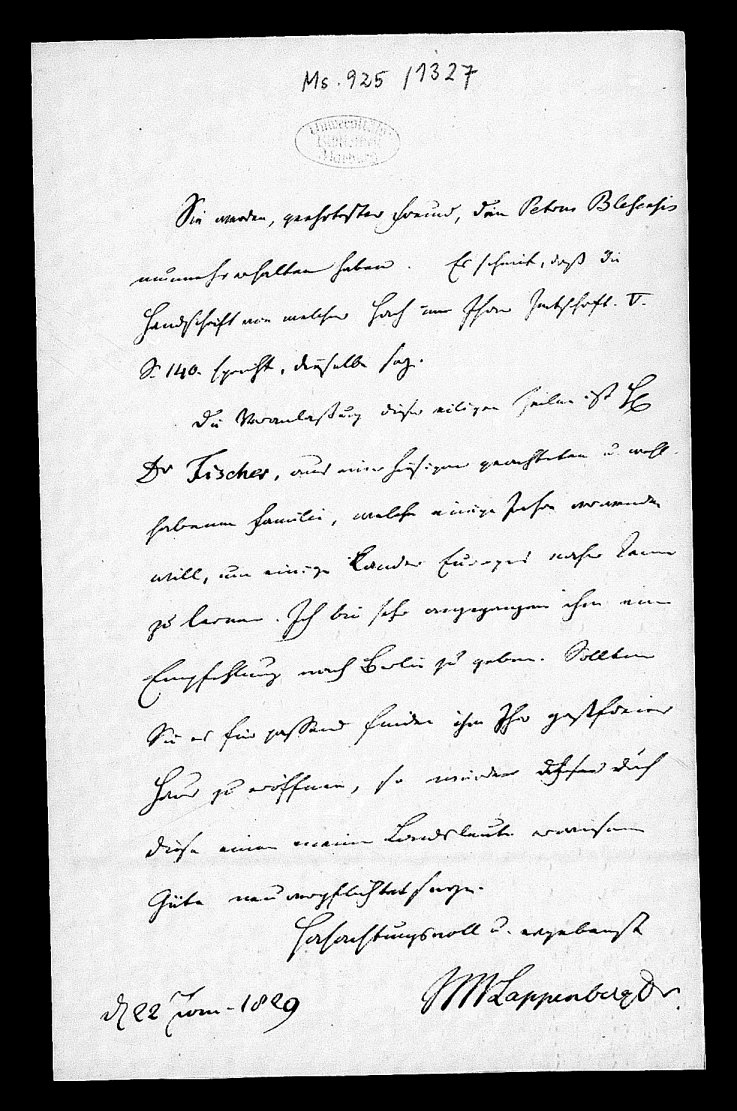 Ms. 925 /1327
Universitäts
Bibliothek
Marburg
Sie werden, geehrtester Freund, den Petrus Blesensis
nunmehr erhalten haben. Es scheint, daß die
Handschrift von welcher Hach in Ihrer Zeitschrift. V.
S. 140. spricht, dieselbe sey.
Die Veranlaßung dieser eiligen Zeilen ist H
Dr Fischer, aus einer hiesigen geachteten u. wohl-
habenen Familie, welche einige Jahre verwenden
will, um einige Länder Europas näher kennen
zu lernen. Ich bin sehr angegangen ihm eine
Empfehlung nach Berlin zu geben. Sollten
Sie es für passend finden ihm Ihr gastfreies
Haus zu eröffnen, so würden durch
diese einem meiner Landsleute erwiesene
Güte neu verpflichtet seyn.
Hochachtungsvoll u. ergebenst
d 22 Juni 1829
JMLappenberg Dr.